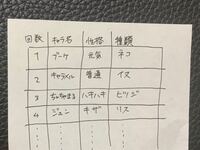 回数 キャラ名 性格 種類
1 ブーケ 元気 ネコ
2 キャラメル 普通 イヌ
3 ちゃちゃまる ハキハキ ヒツジ
4 ジュン キザ リス